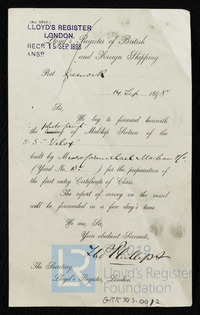 (No. 1803.)
LLOYD'S REGISTER
LONDON
RECD 15 SEP. 1898
Lloyd's Register of British
and Foreign Shipping
Port Greenock
14 Sep 1898
Sir,
We beg to forward herewith
the of Midship Section of the
S.S. "Velox"
built by Messrs Carmichael Maclean & Co
(Yard No. ) for the preparation of
the first entry Certificate of Class.
The report of survey on the vessel
will be forwarded in a few day's time.
We are, Sir,
Your obedient Servants,
Phillips
The Secretary
Lloyd's Register, London.
Lloyd's Register
Foundation